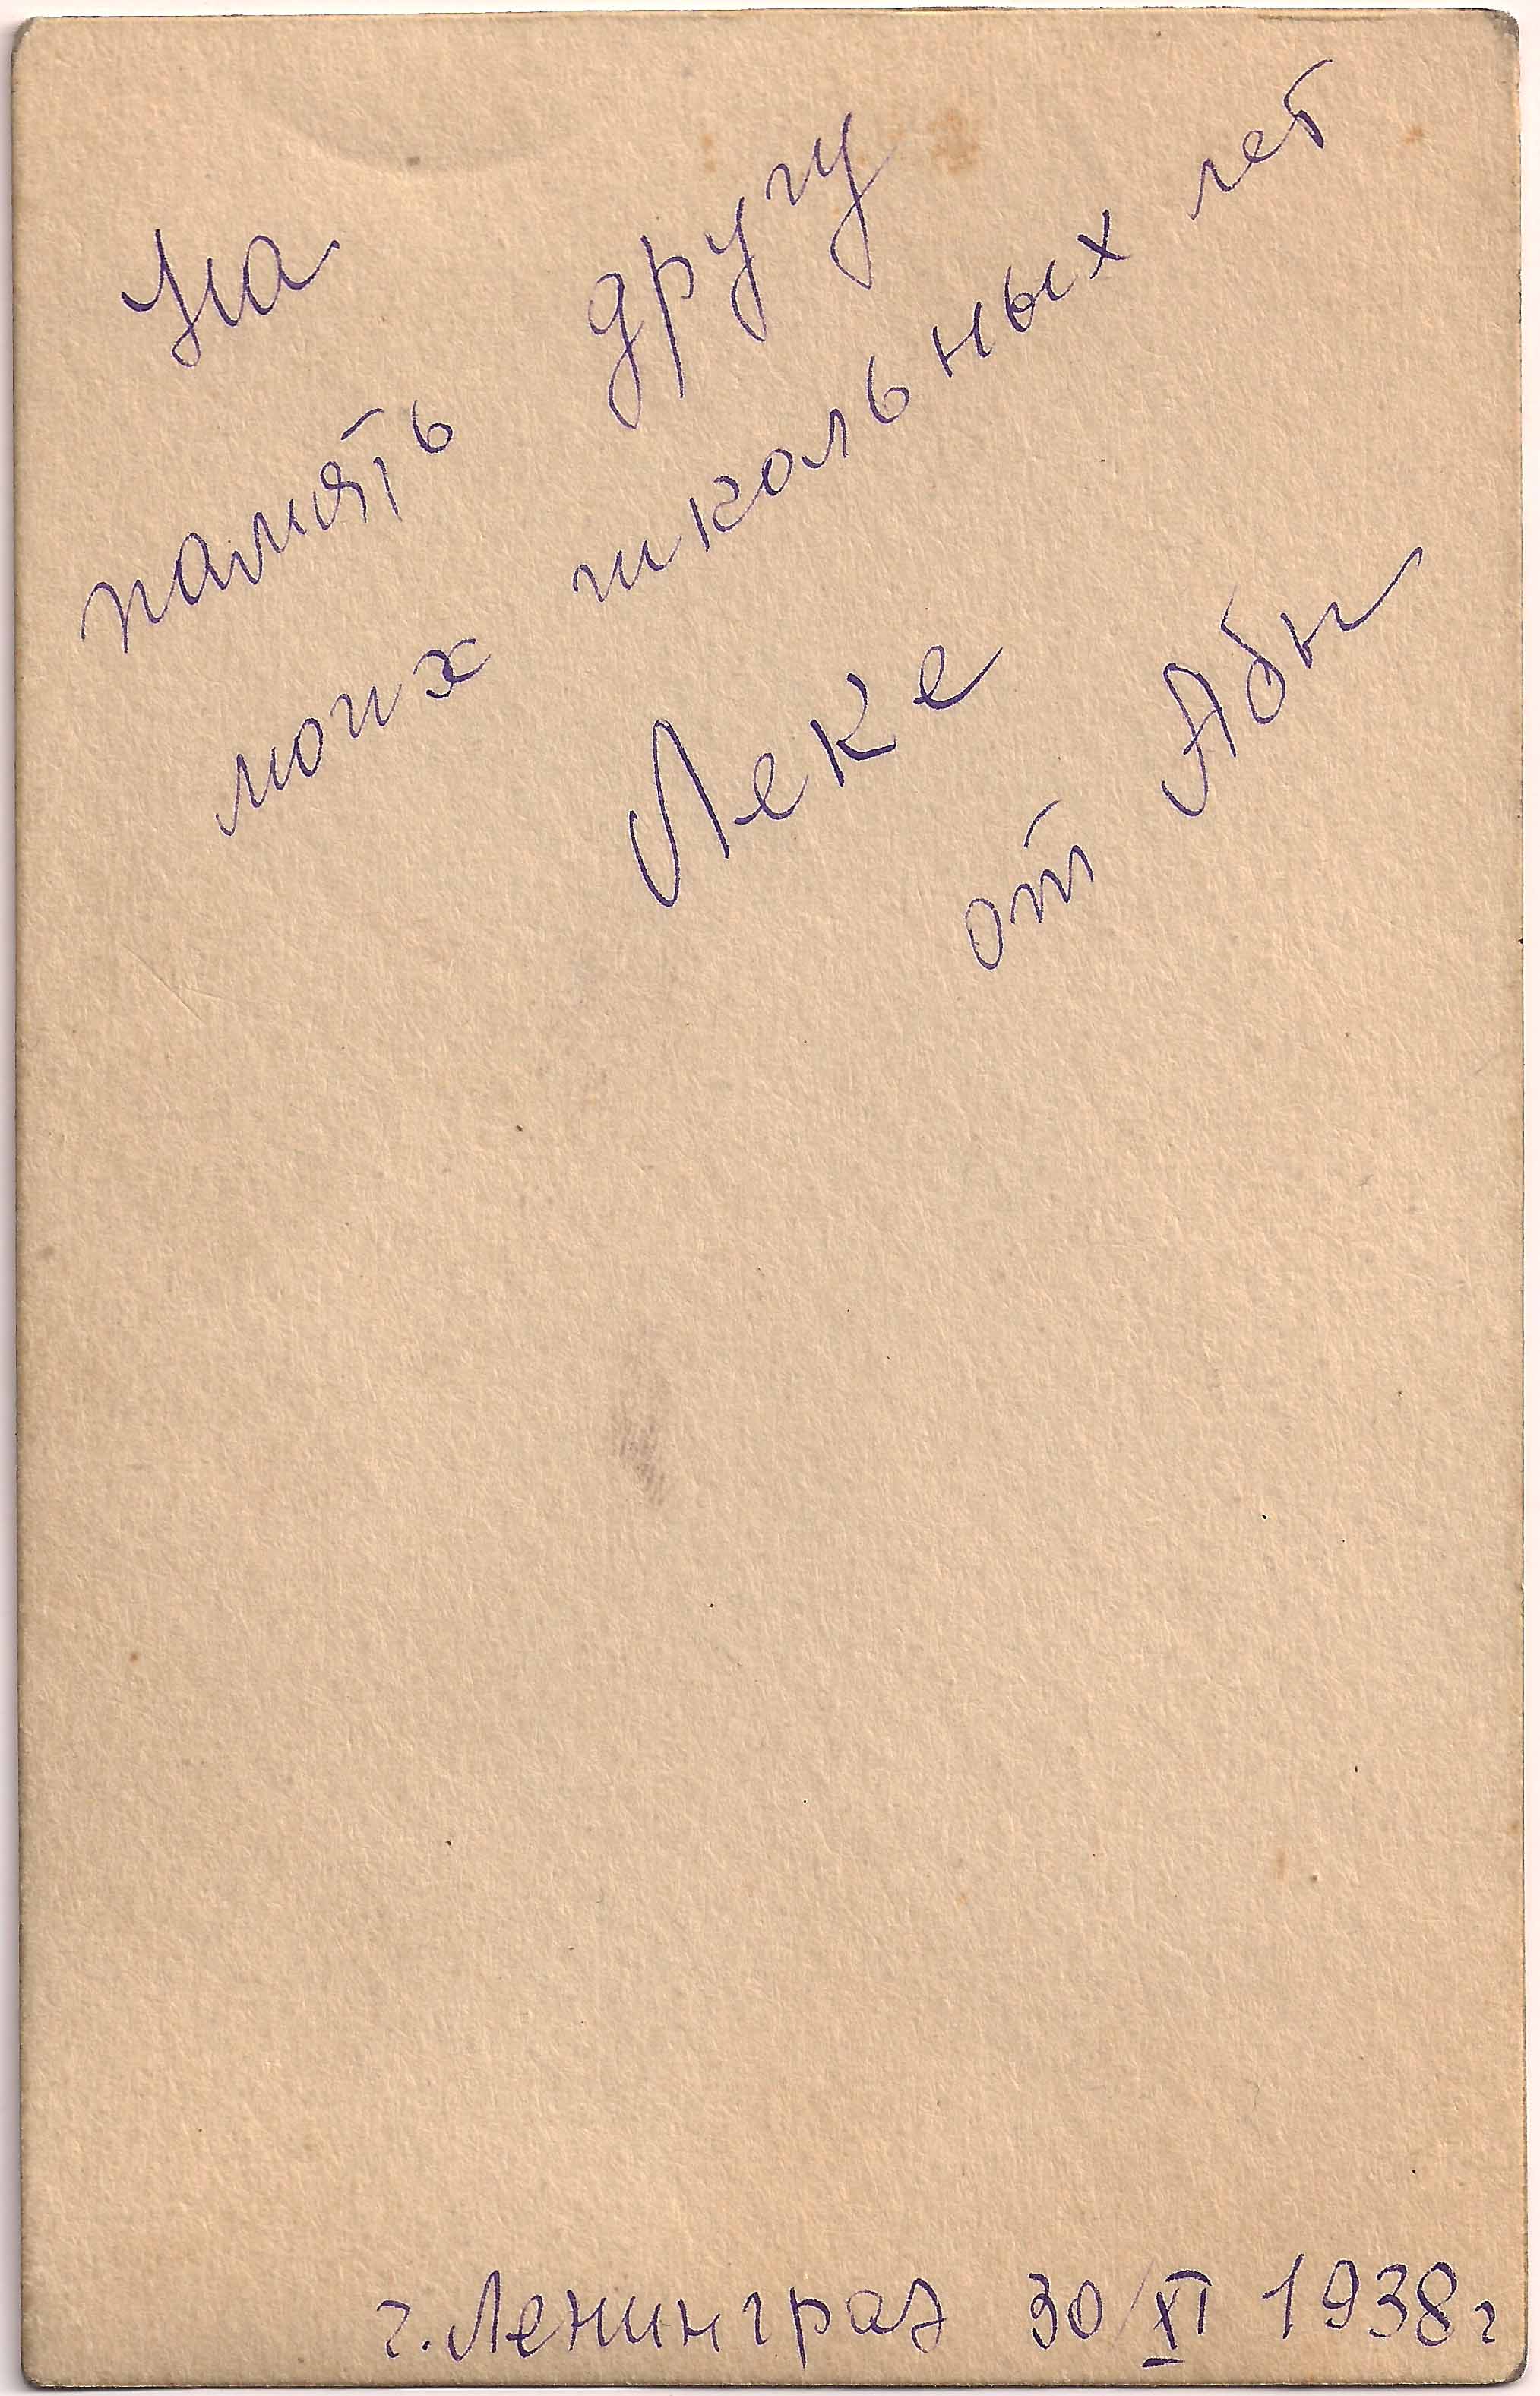 На
память другу
моих школьных лет
Леке
от Абы
г. Ленинград 30/XI 1938г